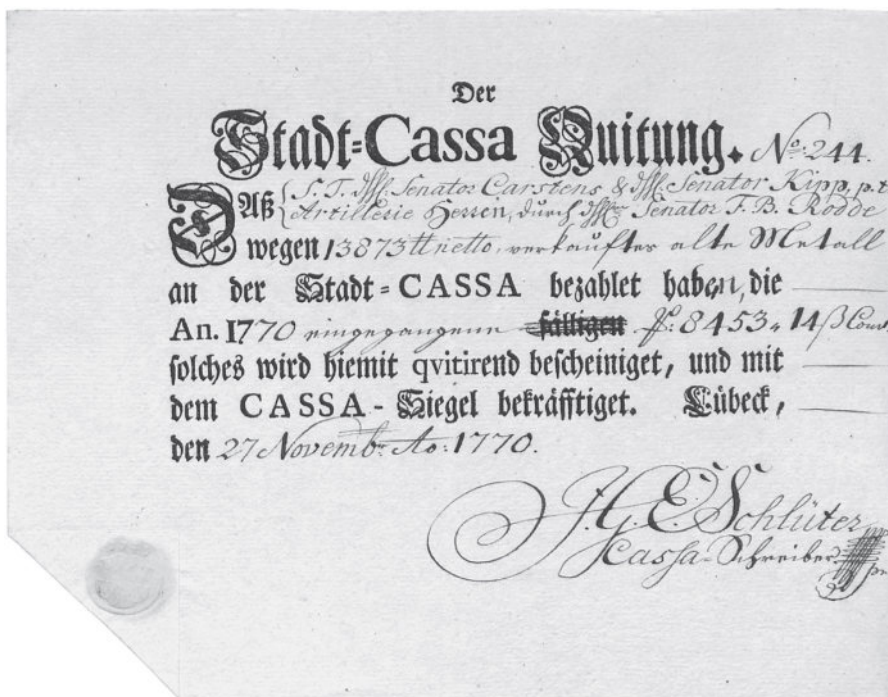 Der
Stadt-Cassa Quitung. No: 244.
Daß S. T. Senator Carstens & Senator Kipp. p. t.
Artillerie Herren, durch Senator F. B. Rodde
wegen 13873 ℔ netto, verkauftes alte Metall
an der Stadt-CASSA bezahlet haben, die
An. 1770 eingegangene fälligen 8453 „ 14 ß Cour
solches wird hiemit qvitirend bescheiniget, und mit
dem CASSA-Siegel bekräfftiget. Lübeck,
den 27 Novembr. Ao: 1770.
J. G. E. Schlüter
Cassa-Schreiber